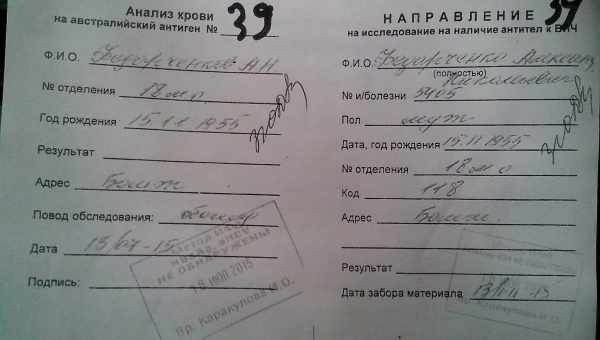 Анализ крови
на австралийский антиген № 39
Ф.И.О. Федорченко АН
№ отделения 18 м о
Год рождения 15.11.1955
Результат
Адрес Бомж
Повод обследования:
Дата 13/07-15
Подпись:
НЕ ОБНАРУЖЕНЫ
2015
Вр. Каракулова И.О.
39
НАПРАВЛЕНИЕ
на исследование на наличие антител к ВИЧ
Ф.И.О. Федорченко
(полностью)
Николаевич
№ и/болезни 5405
Пол муж
Дата, год рождения 15.11.1955
№ отделения 18 м о
Код 118
Адрес Бомж
Результат
Дата забора материала